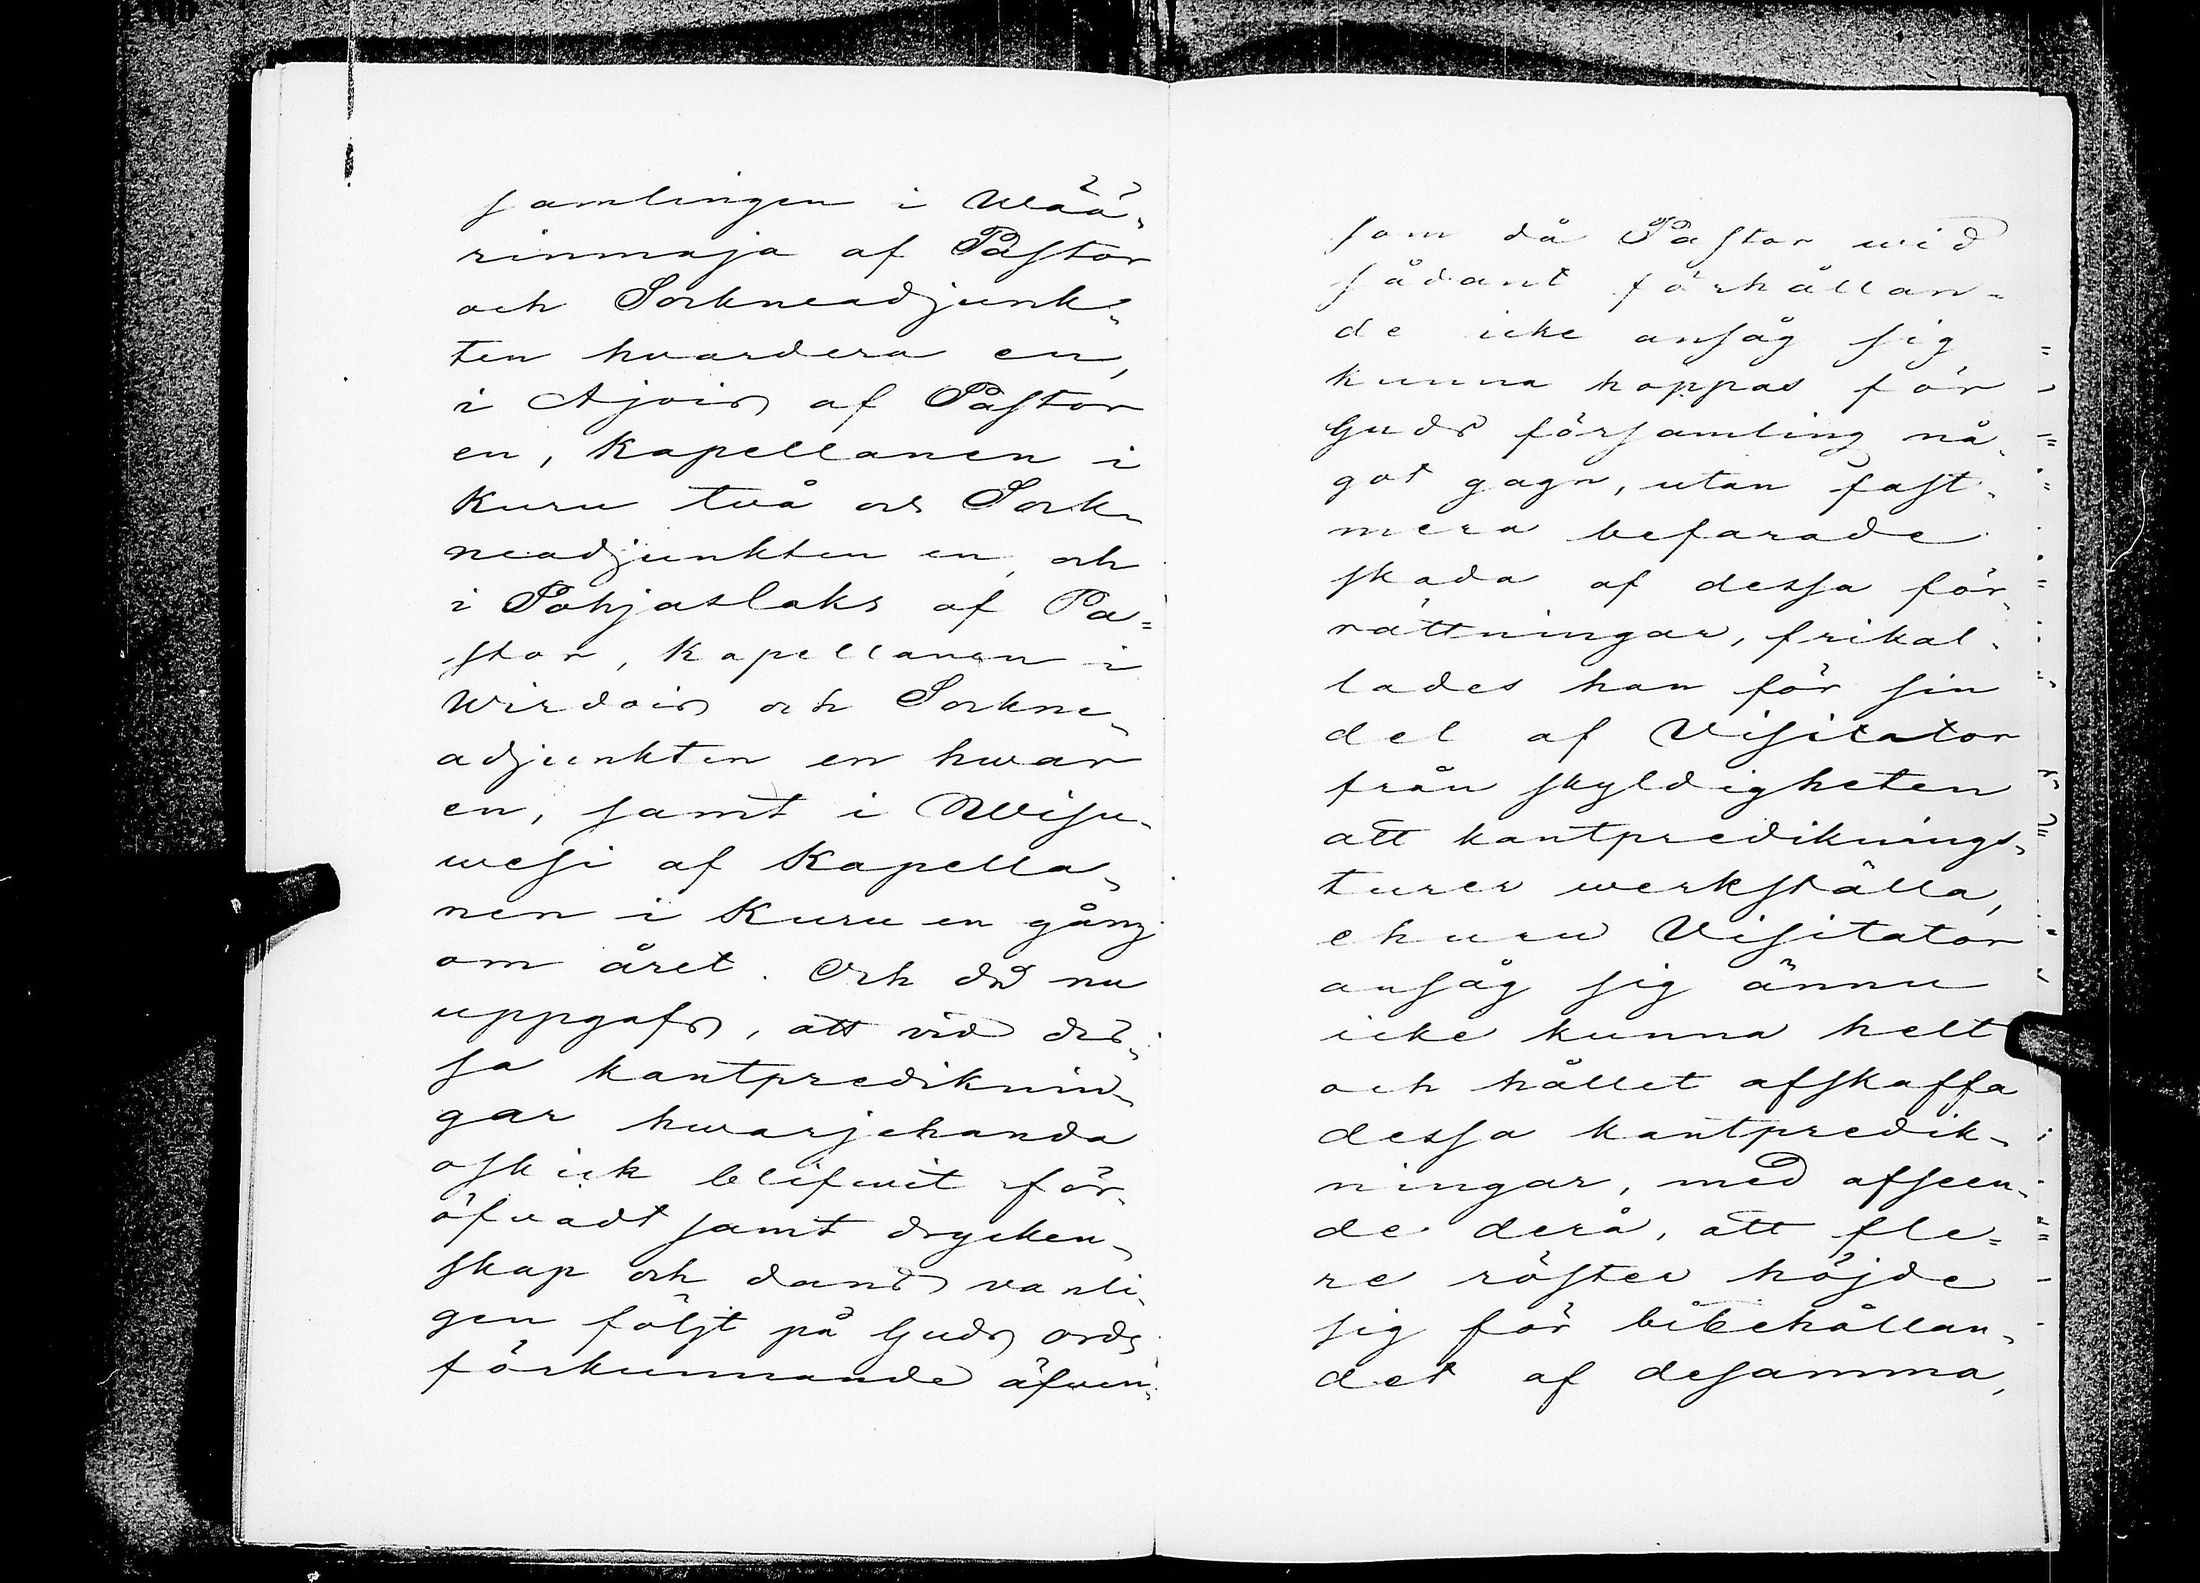 samlingen i Wää-
rinmaja af Pastor
och Sockneadjunk-
ten hvardera en,
i Ajois af Pastor
en, Kapellanen i
Kuru två och Sock-
neadjunkten en, och
i Pohjaslaks af Pa=
stor, Kapellanen i
Wirdois och Sockne-
adjunkten en hwar
en, samt i Wisu-
wesi af Kapella-
nen i Kuru en gång
om året. Och då nu
uppgafs, att vid des-
sa kantprediknin-
gar hwarjehanda
oskick blifwit för-
öfvadt samt drycken-
skap och dans vanli-
gen följt på Guds ords
förkunnande äfven-
som då Pastor wid
sådant förhållan-
de icke ansåg sig
kunna hoppas för
Guds församling nå-
got gagn, utan fast-
mera befarade
skada af dessa för-
rättningar, frikal-
lades han för sin
del af Visitator
från skyldigheten
att kantprediknings-
turer werkställa,
ehuru Visitator
ansåg sig ännu
icke kunna helt
och hållet afskaffa
dessa kantpredik-
ningar, med afseen-
de derå, att fle=
re röster höjde
sig för bibehållan-
det af desamma,